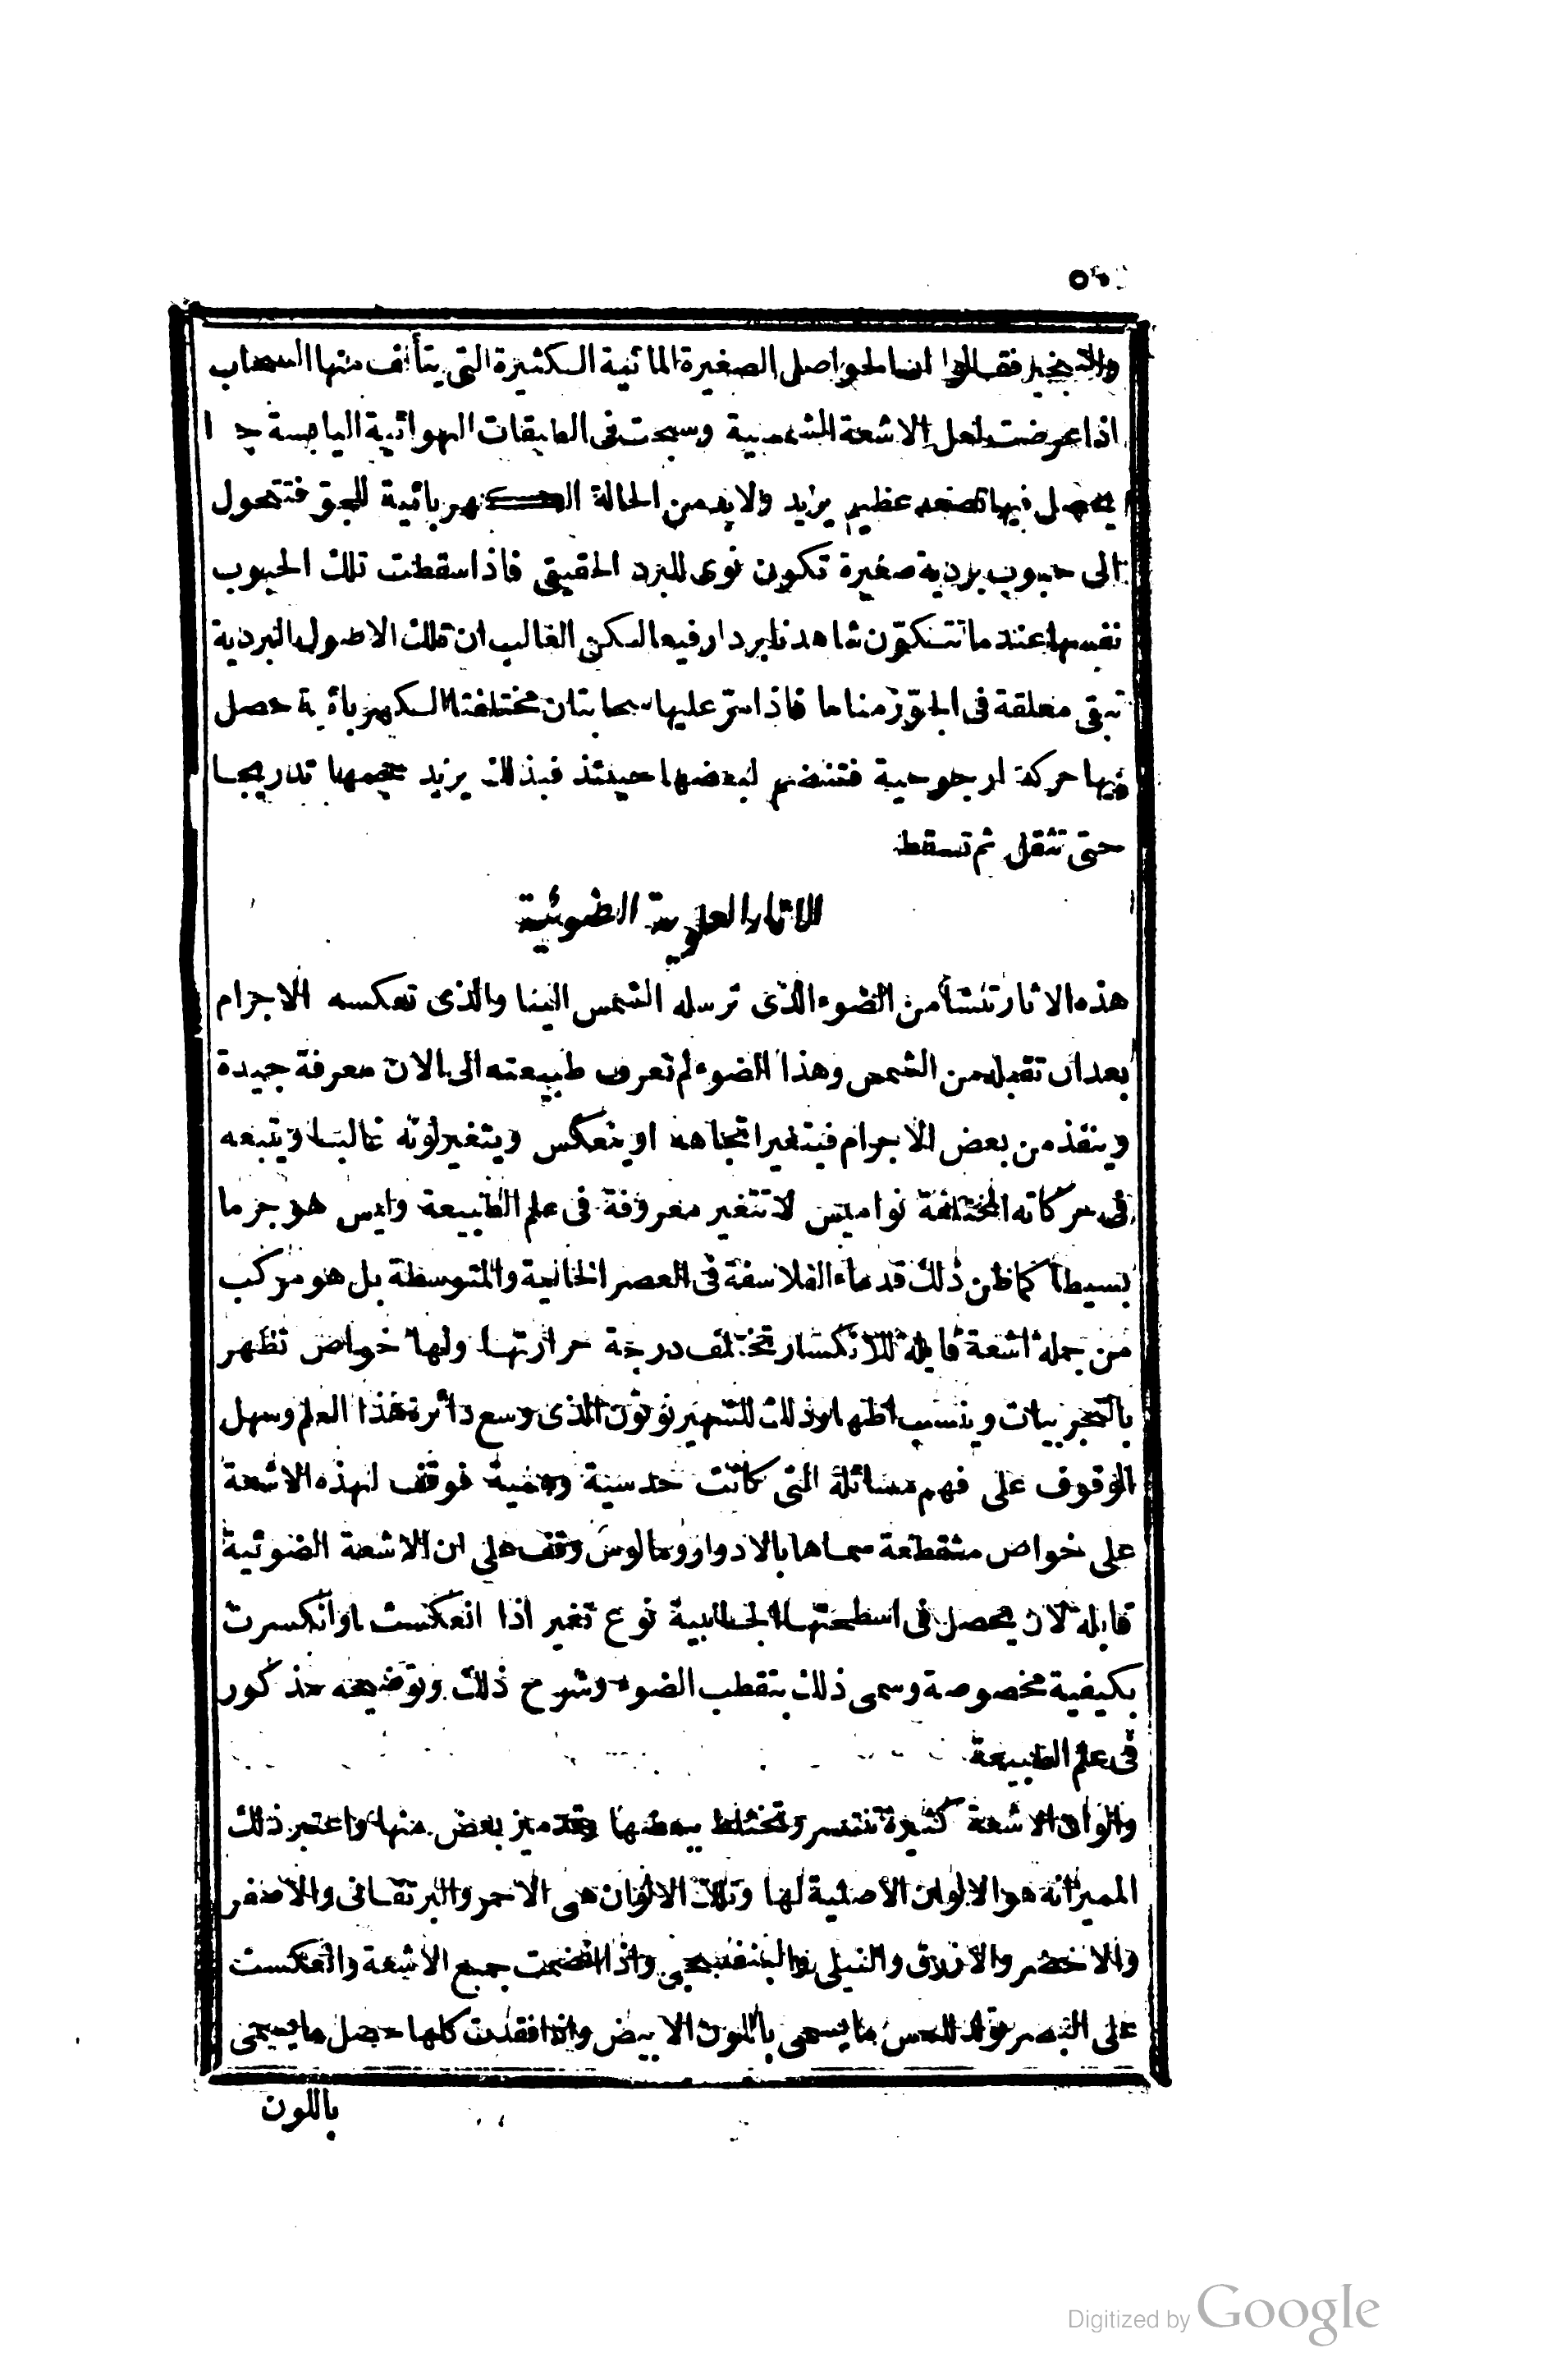 والتبخير فقالوا ان الحواصل الصغيرة المائية الكثيرة التى يتألف منها السحاب
اذا عرضت لفعل الاشعة الشمسية وسبحت فى الطبقات الهوائية اليابسة جدا
يحصل فيها تصعد عظيم يزيد ولابد من الحالة الكهربائية للجو فتتحول
الى حبوب بردية صغيرة تكون نوى للبرد الحقيقى فاذا سقطت تلك الحبوب
نفسها عند ما تتكوّن شاهدنا بردا رفيعا لكن الغالب ان تلك الاصول البردية
تبقى معلقة فى الجوّ زمنا ما فاذا مرّ عليها سحابتان مختلفتا الكهربائية حصل
فيها حركة ارجوحية فتنضم لبعضها حينئذ فبذلك يزيد حجمها تدريجا
حتى تثقل ثم تسقط
الاثار العلوية الضوئية
هذه الاثار تنشأ من الضوء الذى ترسله الشمس الينا والذى تعكسه الاجرام
بعد ان تقبله من الشمس وهذا الضوء لم تعرف طبيعته الى الان معرفة جيدة
وينفذ من بعض الاجرام فيتغير اتجاهه او ينعكس ويتغير لونه غالبا ويتبعه
فى حركاته المختلفة نواميس لا تتغير معروفة فى علم الطبيعة وليس هو جرما
بسيطا كما ظن ذلك قدماء الفلاسفة فى العصر الخالية والمتوسطة بل هو مركب
من جملة اشعة قابلة للانكسار تختلف درجة حرارتها ولها خواص تظهر
بالتجربيات وينسب اظهار ذلك للشهير نوتون الذى وسع دائرة هذا العلم وسهل
الوقوف على فهم مسائله التى كانت حدسية وهمية فوقف لهذه الاشعة
على خواص متقطعة سماها بالادوار ومالوس وقف على ان الاشعة الضوئية
قابلة لان يحصل فى اسطحتها الجانبية نوع تغير اذا انعكست او انكسرت
بكيفية مخصوصة وسمى ذلك بتقطب الضوء وشرح ذلك وتوضيحه مذكور
فى علم الطبيعة
والوان الاشعة كثيرة تنتسر وتختلط ببعضها وقد ميز بعض منها واعتبر ذلك
المميز انه هو الالوان الاصلية لها وتلك الالوان هى الاحمر والبرتقانى والاصفر
والاخضر والازرق والنيلى والبنفسجى واذا انضمت جميع الاشعة وانعكست
على البصر تولد للحس ما يسمى باللون الابيض واذا فقدت كلها حصل ما يسمى
باللون
Digitized by Google